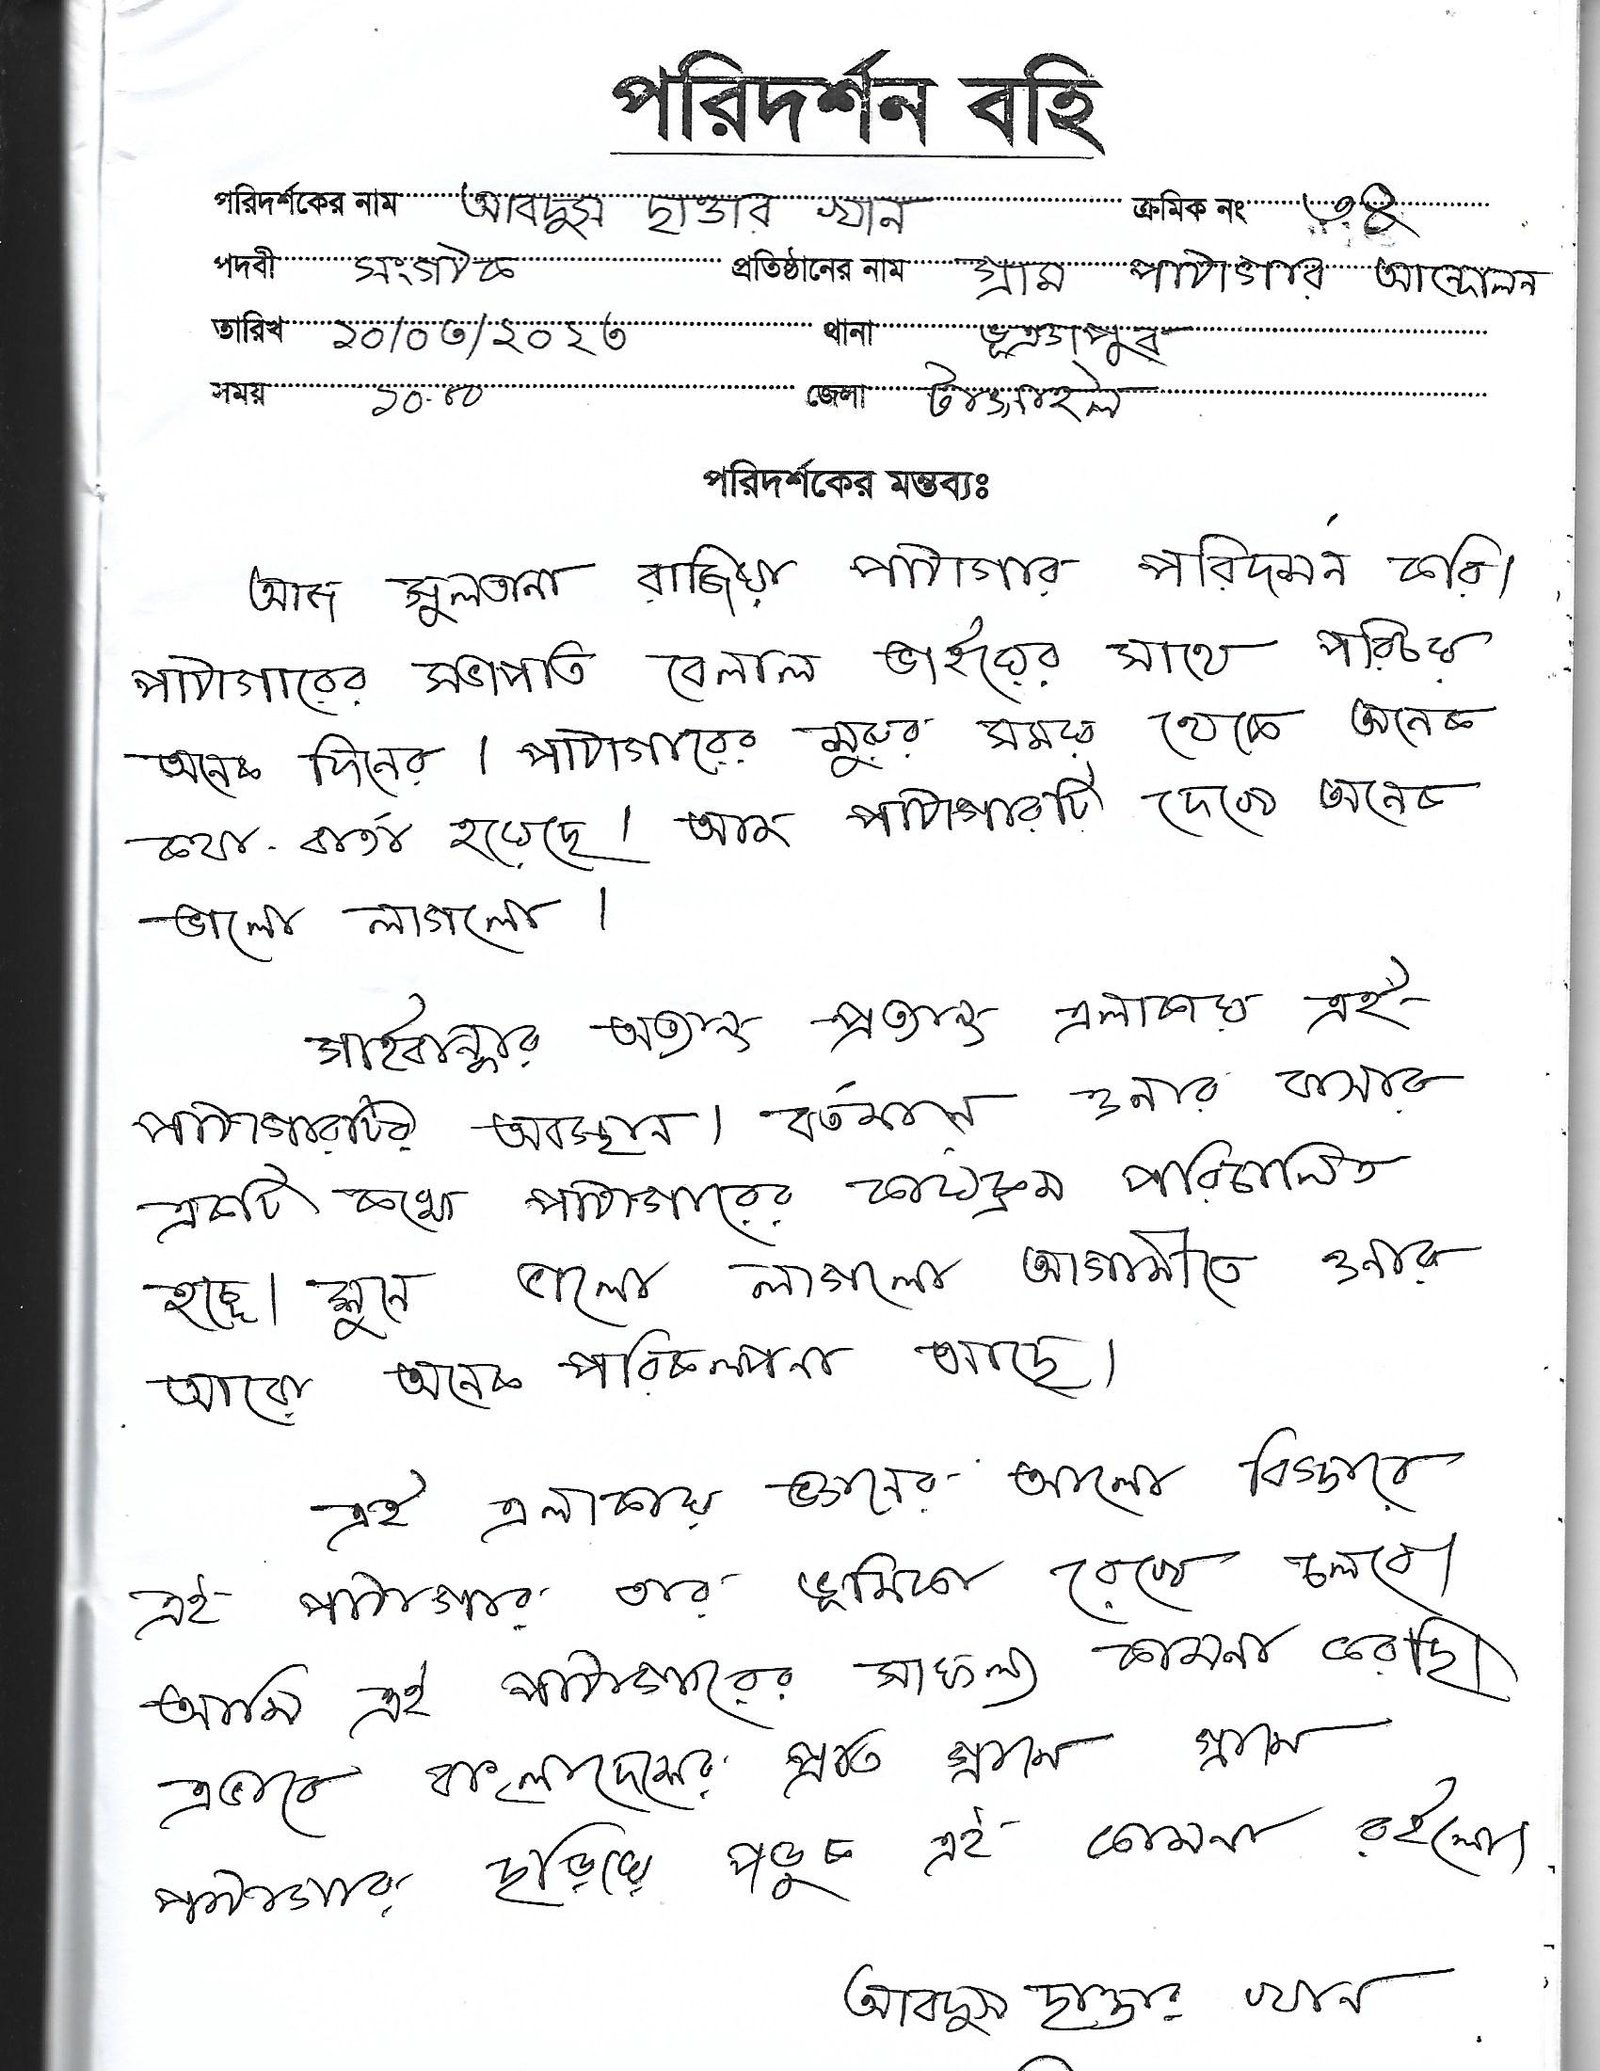 পরিদর্শন বহি
পরিদর্শকের নাম আবদুস ছাত্তার খান ক্রমিক নং ৩৪
পদবী সংগঠক প্রতিষ্ঠানের নাম গ্রাম পাঠাগার আন্দোলন
তারিখ ১০/০৩/২০২৩ থানা ভূঞাপুর
সময় ১০.৪০ জেলা টাঙ্গাইল
পরিদর্শকের মন্তব্যঃ
আজ সুলতানা রাজিয়া পাঠাগার পরিদর্শন করি।
পাঠাগারের সভাপতি বেলাল ভাইয়ের সাথে পরিচয়
অনেক দিনের। পাঠাগারের শুরুর সময় থেকে অনেক
কথা-বার্তা হয়েছে। আজ পাঠাগারটি দেখে অনেক
ভালো লাগলো।
গাইবান্ধার অত্যন্ত প্রত্যন্ত এলাকায় এই
পাঠাগারটির অবস্থান। বর্তমানে ওনার বাসার
একটি কক্ষে পাঠাগারের কার্যক্রম পরিচালিত
হচ্ছে। শুনে ভালো লাগলো আগামীতে ওনার
আরো অনেক পরিকল্পনা আছে।
এই এলাকায় জ্ঞানের আলো বিস্তারে
এই পাঠাগার তার ভূমিকা রেখে চলবে।
আমি এই পাঠাগারের সাফল্য কামনা করছি।
এভাবে বাংলাদেশের প্রতি গ্রামে গ্রামে
পাঠাগার ছড়িয়ে পড়ুক এই কামনা রইলো।
আবদুস ছাত্তার খান